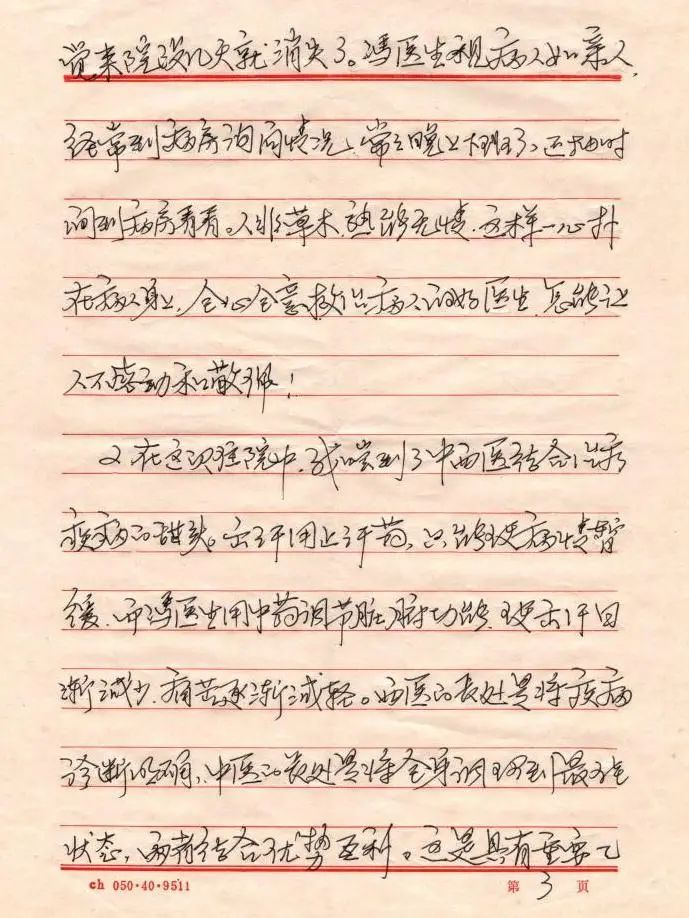 觉来院没几天就消失了。冯医生视病人如亲人,
经常到病房询问情况、常常晚上下班了、还抽时
间到病房看看。人非草木,孰能无情,这样一心扑
在病人身上,全心全意救治病人的好医生,怎能让
人不感动和敬佩!
又在这次住院中,我尝到了中西医结合治疗
疾病的甜头。出汗用止汗药,只能使病情暂
缓,而冯医生用中药调节脏腑功能,使出汗日
渐减少,痛苦逐渐减轻。西医的长处是将疾病
诊断明确,中医的长处是将全身调理到最佳
状态,两者结合优势互利。这是具有重要
ch 050·40·9511
第 3 页